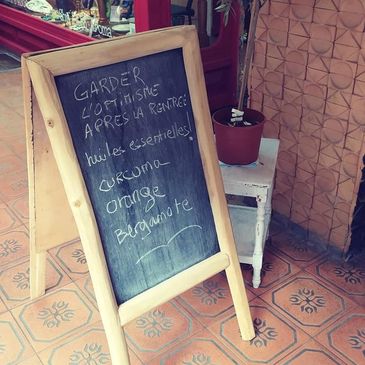 GARDER
L'OPTIMISME
APRES LA RENTRÉE
huiles essentielles!
CURCUMA
orange
Bergamote